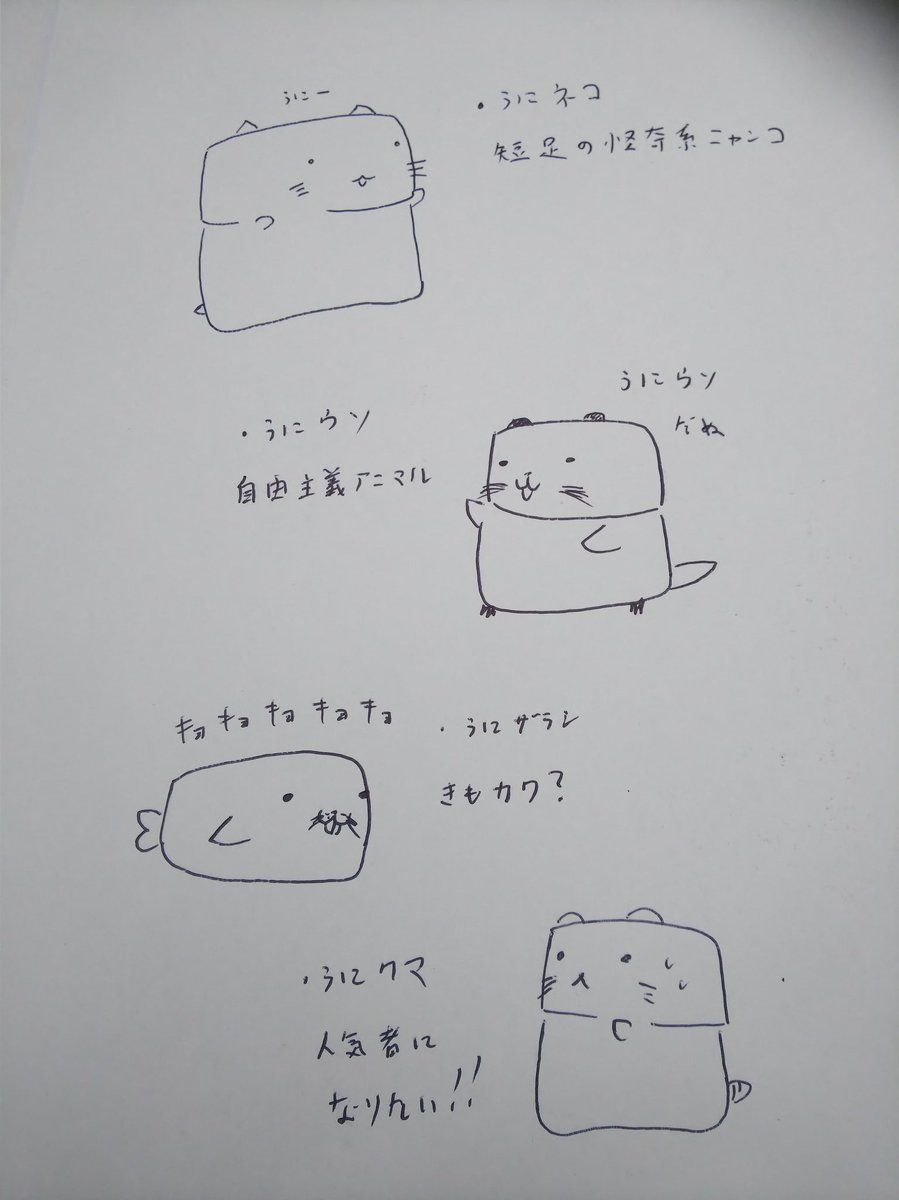 うにー
・うにネコ
短足の怪奈系ニャンコ
うにウソ
だぬ
・うにウソ
自由主義アニマル
キョキョキョキョキョ
・うにザラシ
きもカワ?
・うにクマ
人気者に
なりたい!!